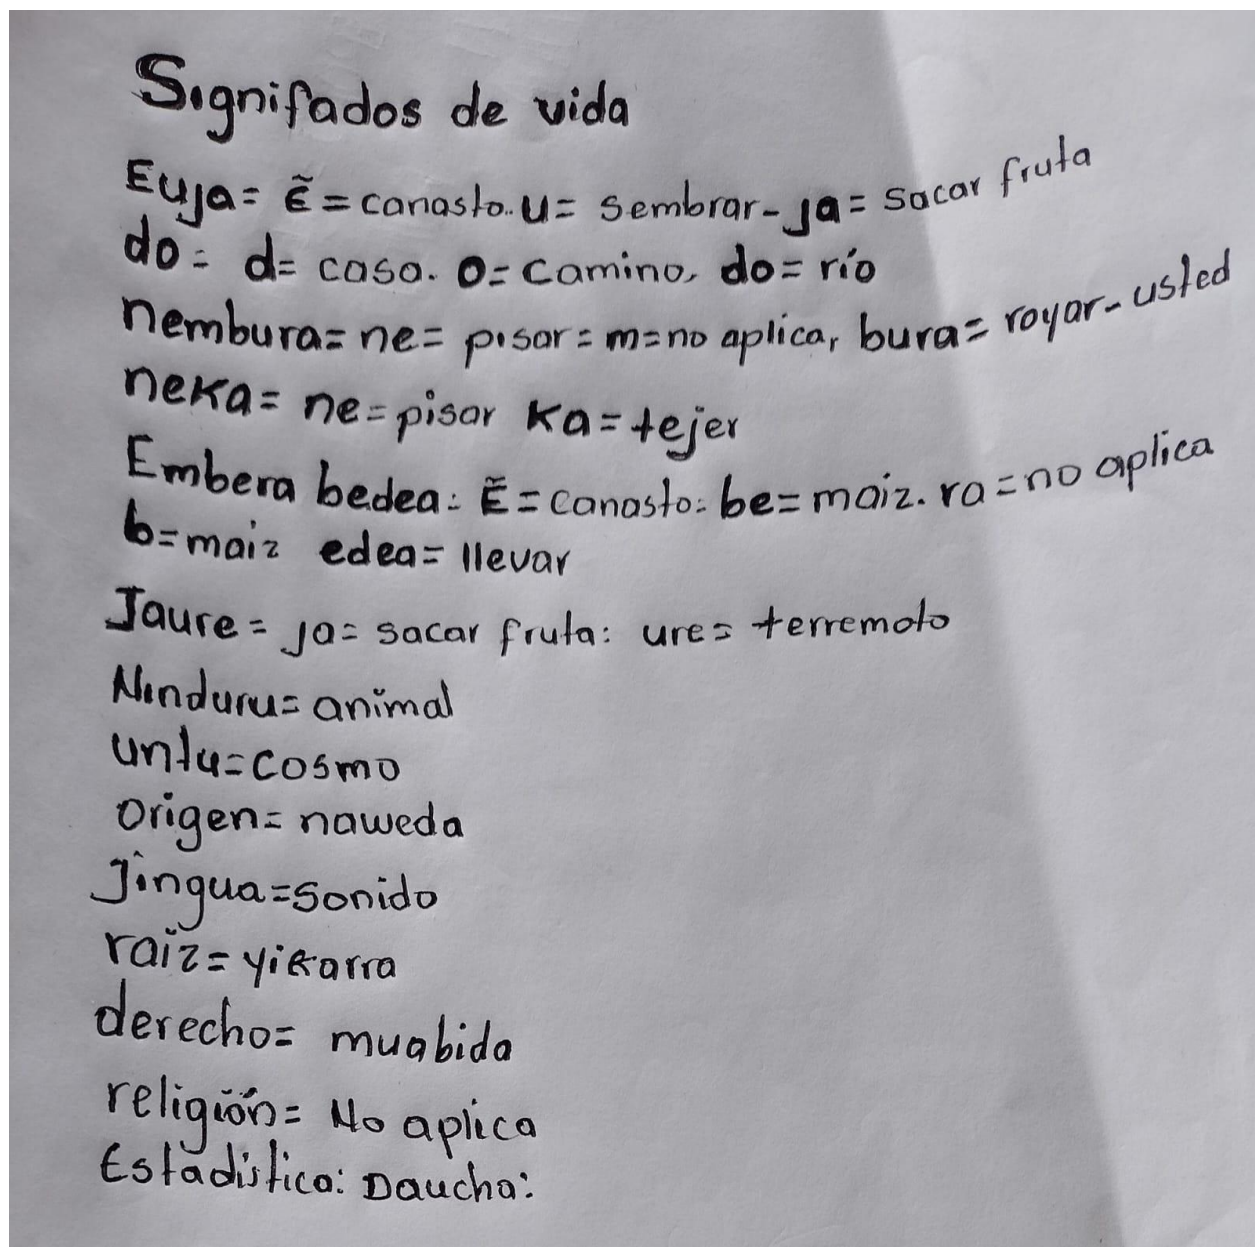 Signifados de vida
Euja= Ẽ= canasto.. U= sembrar- ja= sacar fruta
do= d= casa. O= camino, do= río
nembura= ne= pisar= m=no aplica, bura= royar- usted
neka= ne=pisar ka= tejer
Embera bedea: Ẽ= canasto: be= maiz. ra=no aplica
b=maiz edea= llevar
Jaure= ja= sacar fruta: ure= terremoto
Ninduru= animal
untu=cosmo
origen= naweda
Jingua=sonido
raiz= yikarra
derecho= muabida
religión= No aplica
Estadistica: Daucha: